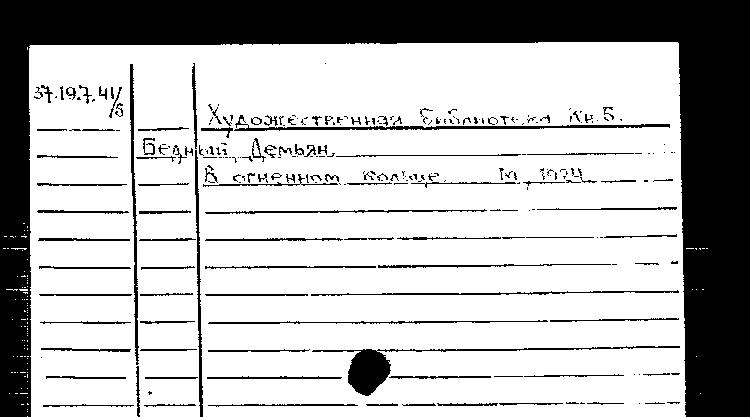 37.19.7.41/5
Художественная библиотека Кн. 5.
Бедный, Демьян.
В огненном кольце. М., 1924.